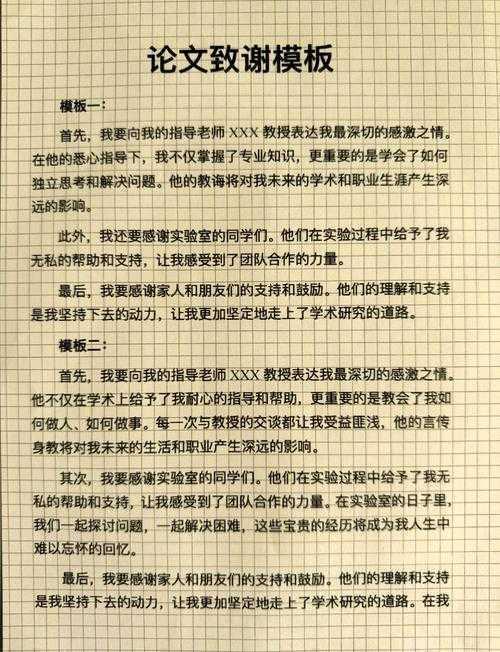 论文致谢模板
模板一：
首先，我要向我的指导老师 XXX 教授表达我最深切的感激之情。
在他的悉心指导下，我不仅掌握了专业知识，更重要的是学会了如何
独立思考和解决问题。他的教诲将对我未来的学术和职业生涯产生深
远的影响。
此外，我还要感谢实验室的同学们。他们在实验过程中给予了我
无私的帮助和支持，让我感受到了团队合作的力量。
最后，我要感谢家人和朋友们的支持和鼓励。他们的理解和支持
是我坚持下去的动力，让我更加坚定地走上了学术研究的道路。
模板二：
首先，我要向我的指导老师 XXX 教授表达我最深切的感激之情。
他不仅在学术上给予了我耐心的指导和帮助，更重要的是教会了我如
何做人、如何做事。每一次与教授的交谈都让我受益匪浅，他的言传
身教将对我未来的生活和职业产生深远的影响。
其次，我要感谢实验室的同学们。他们在实验过程中给予了我无
私的帮助和支持，让我感受到了团队合作的力量。在实验室的日子里，
我们一起探讨问题，一起解决困难，这些宝贵的经历将成为我人生中
难以忘怀的回忆。
最后，我要感谢家人和朋友们的支持和鼓励。他们的理解和支持
是我坚持下去的动力，让我更加坚定地走上了学术研究的道路。在我